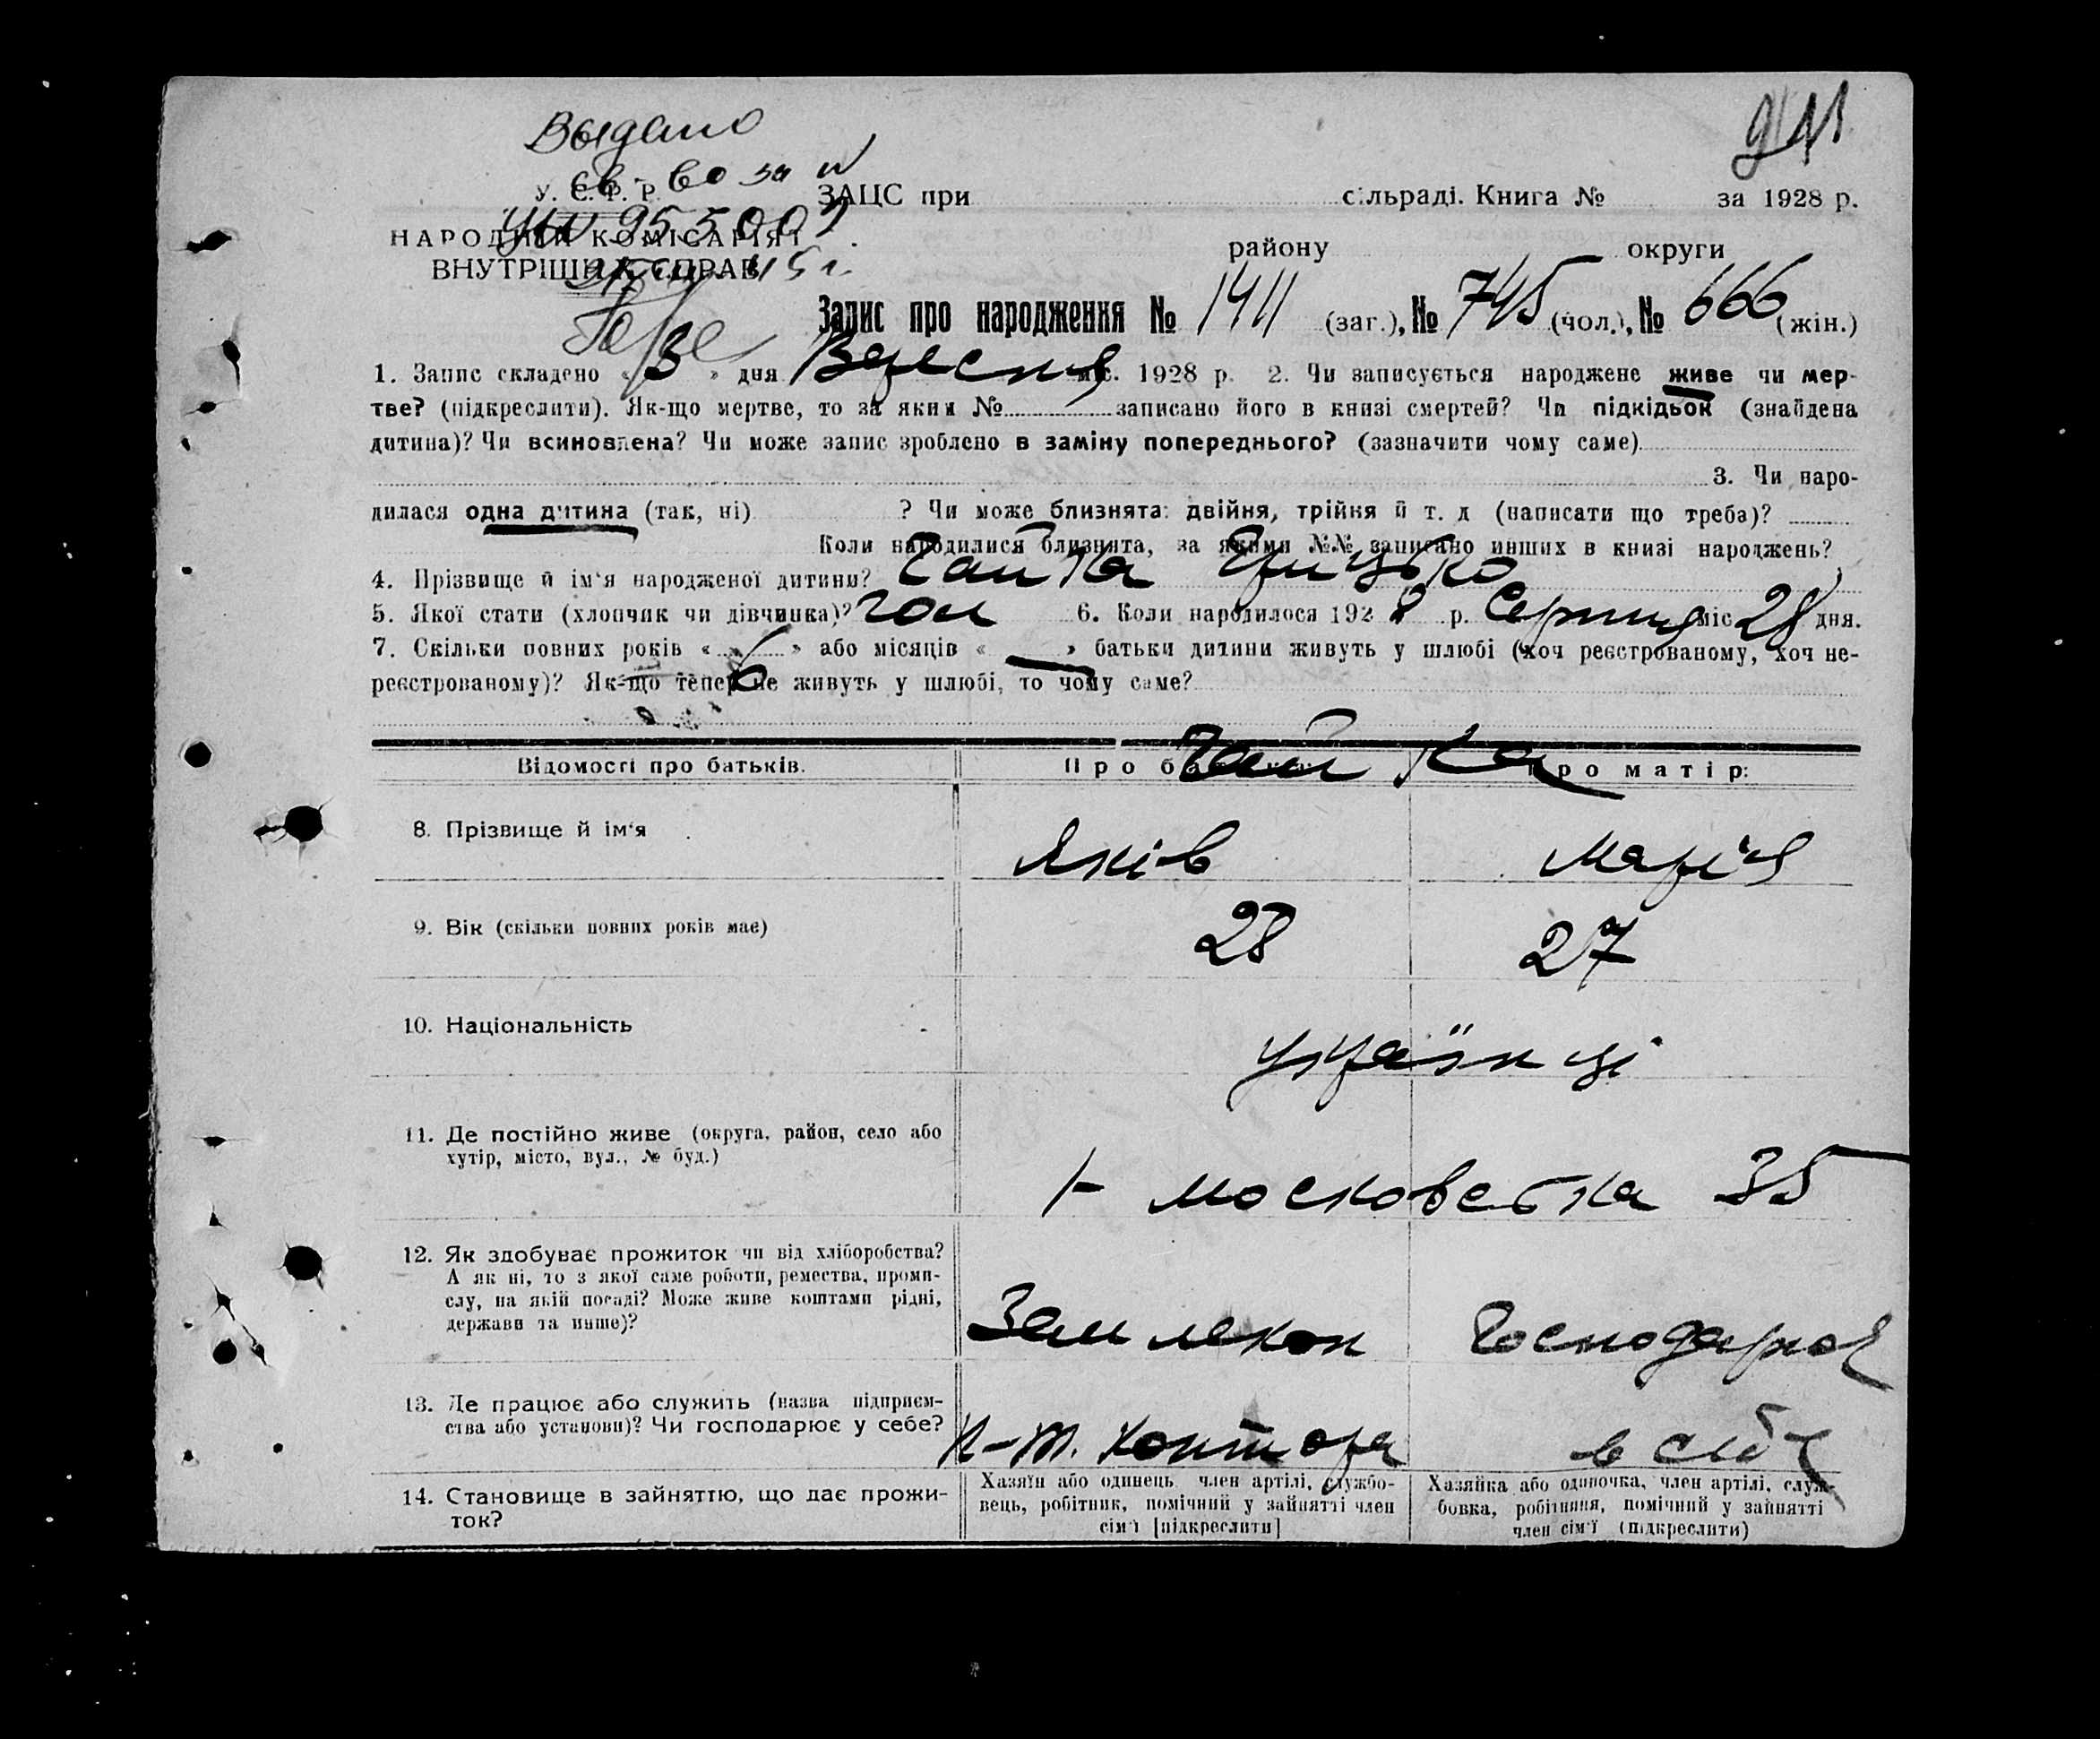 Выдано
941
св-во за №
У. С. Р. Р.
ЗАЦС при сільраді. Книга № за 1928 р.
НАРОДНІЙ КОМІСАРІЯТ
району округи
ВНУТРІШНІХ СПРАВ
Запис про народження № 1411 (заг.), № 745 (чол.), № 666 (жін.)
1. Запис складено « 3 » дня Вересня міс. 1928 р. 2. Чи записується народжене живе чи мер-
тве? (підкреслити). Як-що мертве, то за яким № записано його в книзі смертей? Чи підкідьок (знайдена
дитина)? Чи всиновлена? Чи може запис зроблено в заміну попереднього? (зазначити чому саме)
3. Чи наро-
дилася одна дитина (так, ні) ? Чи може близнята: двійня, трійня й т. д (написати що треба)?
Коли народилися близнята, за якими №№ записано инших в книзі народжень?
4. Прізвище й ім'я народженої дитини? Чайка Грицько
5. Якої стати (хлопчик чи дівчинка)? чол 6. Коли народилося 1928 р. Серпня міс 28 дня.
7. Скільки повних років « 6 » або місяців « — » батьки дитини живуть у шлюбі (хоч реєстрованому, хоч не-
реєстрованому)? Як-що тепер не живуть у шлюбі, то чому саме?
Чайка
Відомості про батьків. Про батька: Про матір:
8. Прізвище й ім'я Яків Марія
9. Вік (скільки повних років має) 28 27
10. Національність українці
11. Де постійно живе (округа, район, село або
хутір, місто, вул., № буд.)
Московська 35
12. Як здобуває прожиток чи від хліборобства?
А як ні, то з якої саме роботи, ремества, проми-
слу, на якій посаді? Може живе коштами рідні,
держави та инше)?
Господарює
13. Де працює або служить (назва підприєм-
ства або установи)? Чи господарює у себе?
п-т. контора в себе
14. Становище в зайняттю, що дає прожи-
ток?
Хазяїн або одинець, член артілі, службо-
вець, робітник, помічний у зайнятті член
сім'ї [підкреслити]
Хазяйка або одиночка, член артілі, служ-
бовка, робітниця, помічний у зайнятті
член сім'ї (підкреслити)